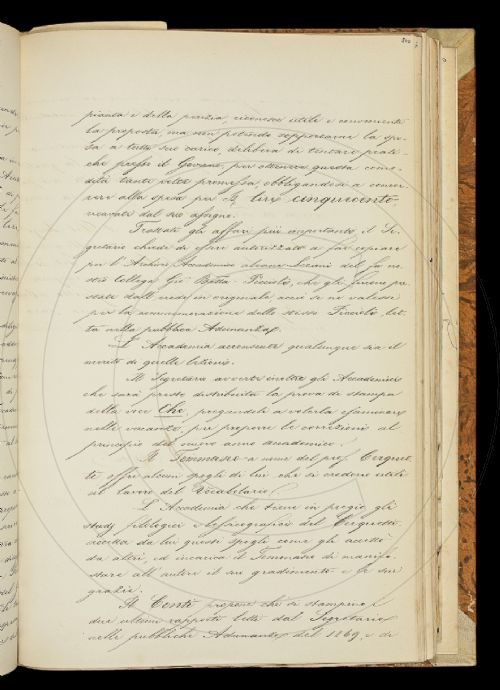 pianta e della perizia, riconosce utile e conveniente
la proposta, ma non potendo sopportarne la spe-
sa a tutto suo carico, delibera di tentare prati-
che presso il Governo, per ottenere questa como-
dità tante volte promessa, obbligandosi a concor-
rere alla spesa per lire cinquecento,
ricavate dal suo assegno.
Trattato gli affari più importanti, il Se-
gretario chiede di essere autorizzato a far copiare
per l'Archivio Accademico alcune Lezioni del fu no-
stro Collega Gio. Batta. che gli furono pre-
state dall' erede in originale, acciò se ne valesse
per la commemorazione dello stesso let-
ta nella pubblica Adunanza.
L' Accademia acconsente qualunque sia il
merito di quelle lezioni.
Il Segretario avverte inoltre gli Accademici
che sarà presto distribuita la prova di stampa
della voce Che, pregandoli a volerla esaminare
nelle vacanze, per preparare le correzioni al
principio del nuovo anno accademico.
Il Tommaseo a nome del prof. Cerquet-
ti offre alcuni spogli di lui che si credono utili
al lavoro del Vocabolario.
L' Accademia che tiene in pregio gli
studj filologici e lessicografici del Cerquetti
accetta da lui questi spogli come gli accettò
da altri, ed incarica il Tommaseo di manife-
stare all' autore il suo gradimento e le sue
grazie.
Il Conti propone che si stampino i
due ultimi rapporti letti dal Segretario
nelle pubbliche Adunanze del 1869, e di